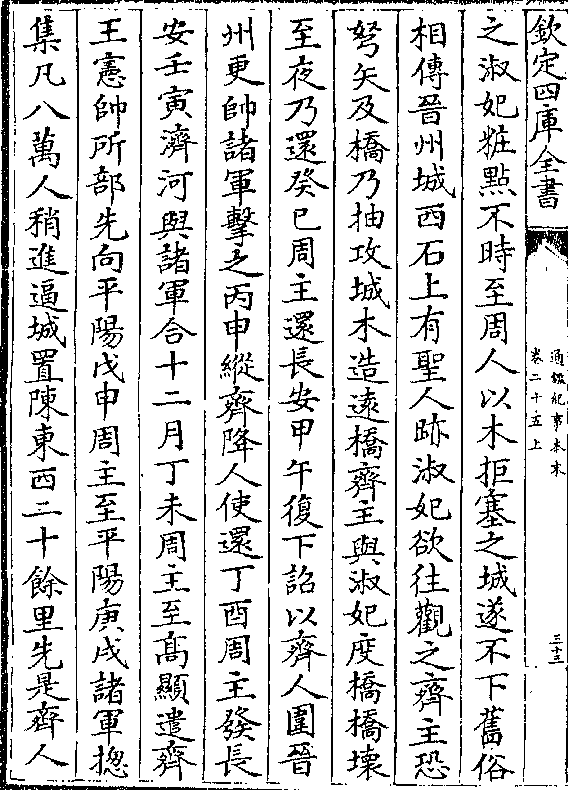 欽定四庫全書
通鑑紀事本末
卷二十五上
三十三
之淑妃粧點不時至周人以木拒塞之城遂不下舊俗
相傳晉州城西石上有聖人跡淑妃欲往觀之齊主恐
弩矢及橋乃抽攻城木造逺橋齊主與淑妃度橋橋壞
至夜乃還癸巳周主還長安甲午復下詔以齊人圍晉
州更帥諸軍擊之丙申縱齊降人使還丁酉周主發長
安壬寅濟河與諸軍合十二月丁未周主至髙顯遣齊
王憲帥所部先向平陽戊申周主至平陽庚戌諸軍揔
集凡八萬人稍進逼城置陳東西二十餘里先是齊人